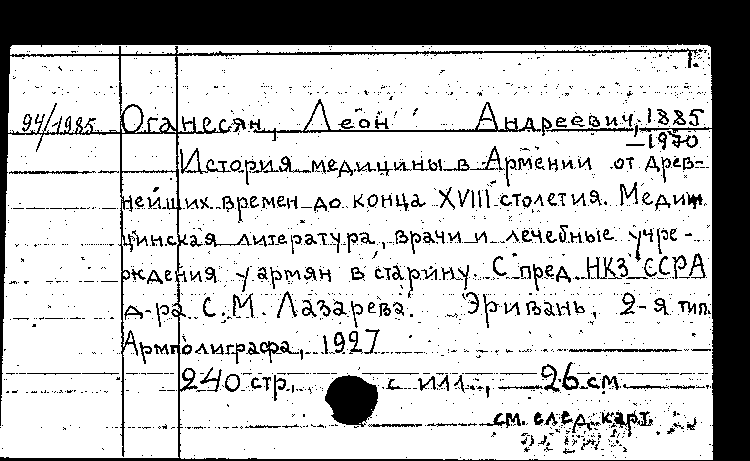 1.
94/1985 Оганесян, Леон Андреевич, 1885
—1970
История медицины в Армении от древ-
нейших времен до конца XVIII столетия. Медиц
цинская литература, врачи и лечебные учре-
ждения у армян в старину. С пред. НКЗ ССРА
д-ра С. М. Лазарева. Эривань, 2-я тип.
Армполиграфа, 1927
240 стр. с илл., 26 см.
см. след. карт.